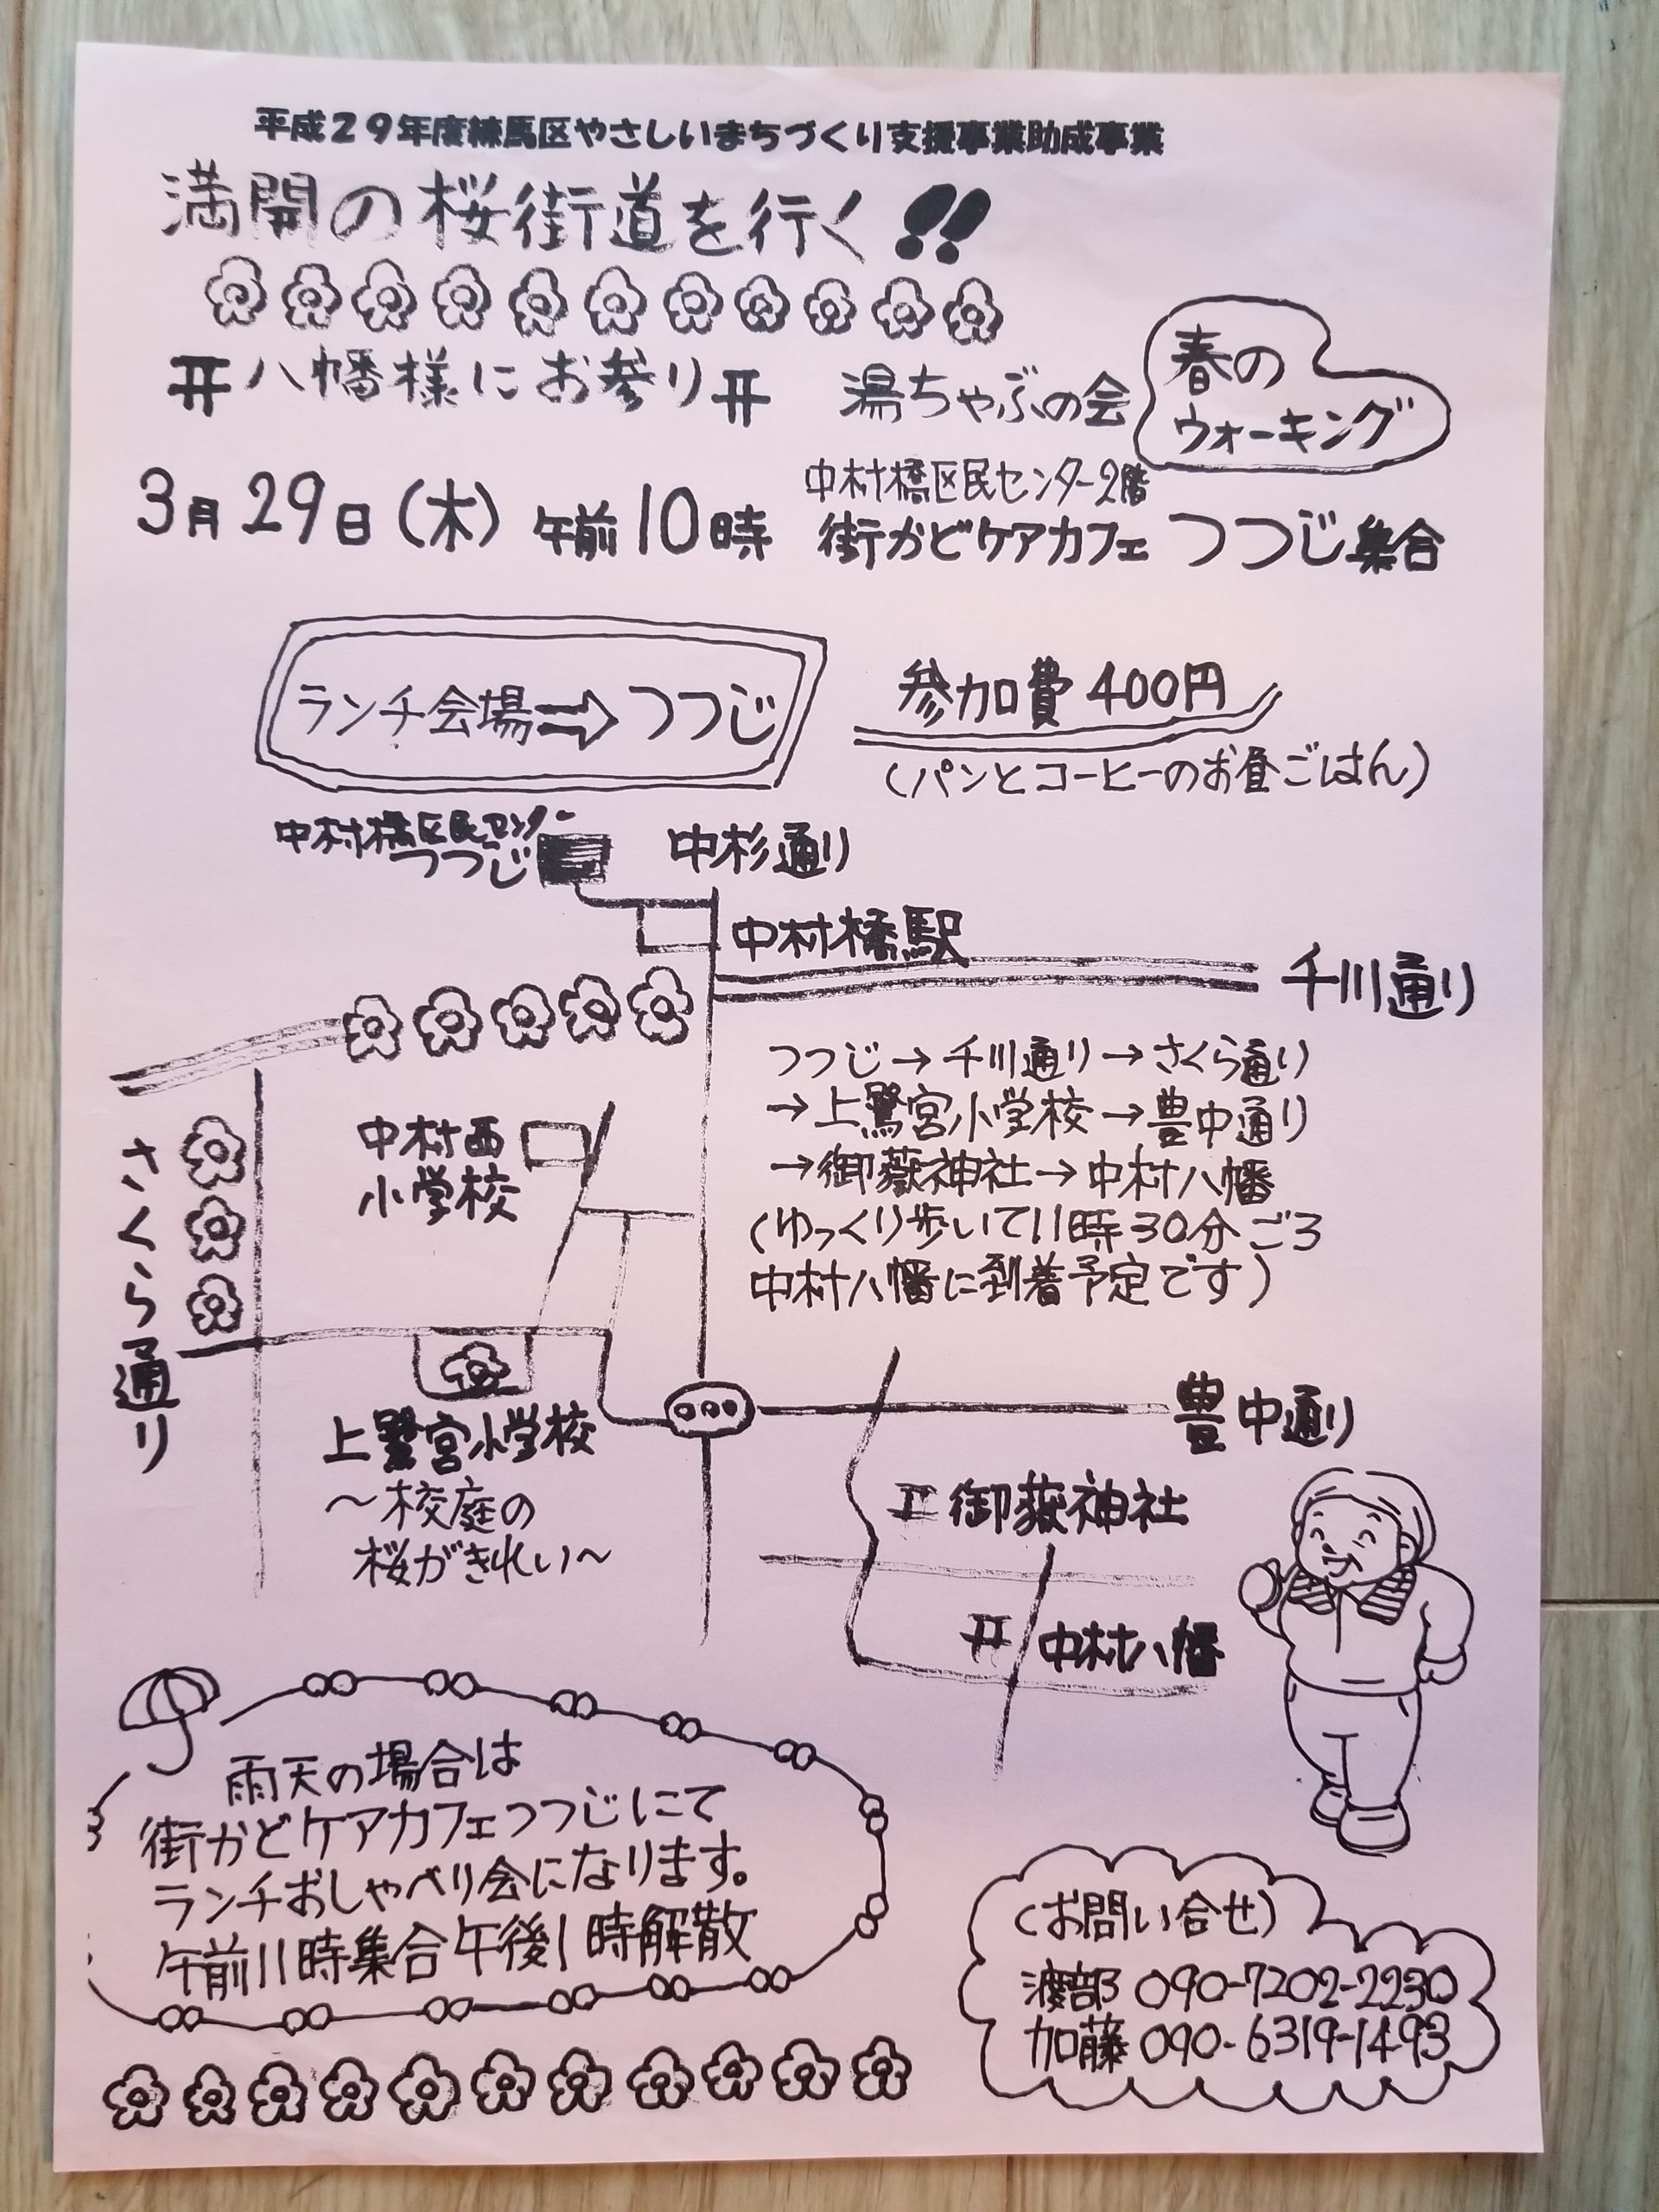 平成29年度練馬区やさしいまちづくり支援事業助成事業
満開の桜街道を行く!!
八幡様にお参り
湯ちゃぶの会
春の
ウォーキング
3月29日(木)午前10時
中村橋区民センター2階
街かどケアカフェつつじ集合
ランチ会場⇒つつじ
参加費400円
(パンとコーヒーのお昼ごはん)
中村橋区民センター
つつじ
中杉通り
中村橋駅
千川通り
つつじ→千川通り→さくら通り
→上鷺宮小学校→豊中通り
→御嶽神社→中村八幡
(ゆっくり歩いて11時30分ごろ
中村八幡に到着予定です)
さくら通り
中村西
小学校
上鷺宮小学校
〜校庭の
桜がきれい〜
豊中通り
御嶽神社
中村八幡
雨天の場合は
街かどケアカフェつつじにて
ランチおしゃべり会になります。
午前11時集合午後1時解散
(お問い合せ)
渡部 090-7202-2230
加藤 090-6319-1493